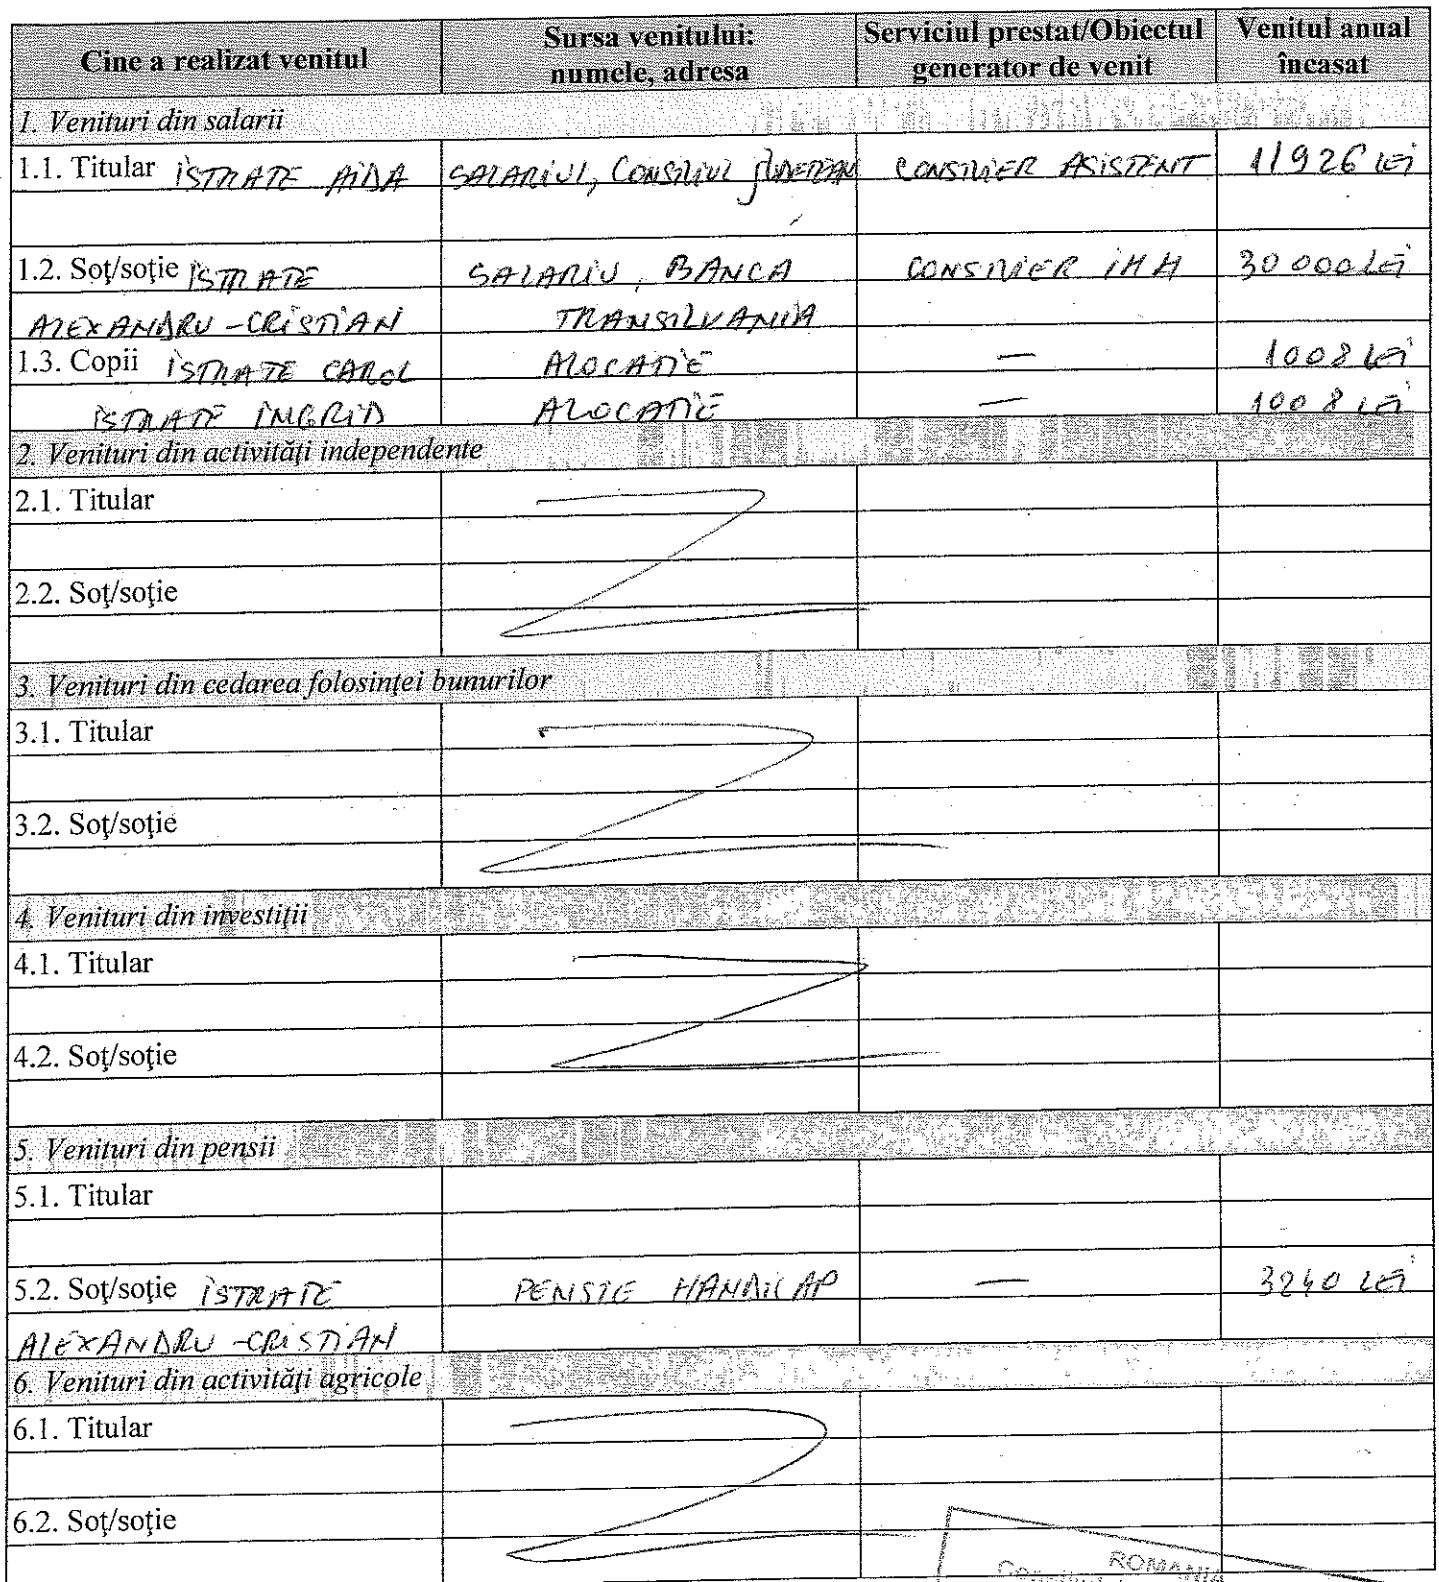 Cine a realizat venitul
Sursa venitului:
numele, adresa
Serviciul prestat/Obiectul
generator de venit
Venitul anual
încasat
1. Venituri din salarii
1.1. Titular ISTRATE AIDA SALARIUL, CONSILIUL JUDETEAN CONSILIER ASISTENT 11926 LEI
1.2. Soţ/soţie ISTRATE SALARIU, BANCA CONSILIER IMM 30 000 LEI
ALEXANDRU-CRISTIAN TRANSILVANIA
1.3. Copii ISTRATE CAROL ALOCATIE — 1008 LEI
ISTRATE INGRID ALOCATIE — 1008 LEI
2. Venituri din activităţi independente
2.1. Titular
2.2. Soţ/soţie
3. Venituri din cedarea folosinţei bunurilor
3.1. Titular
3.2. Soţ/soţie
4. Venituri din investiţii
4.1. Titular
4.2. Soţ/soţie
5. Venituri din pensii
5.1. Titular
5.2. Soţ/soţie ISTRATE PENSIE HANDICAP — 3240 LEI
ALEXANDRU-CRISTIAN
6. Venituri din activităţi agricole
6.1. Titular
6.2. Soţ/soţie
ROMANIA